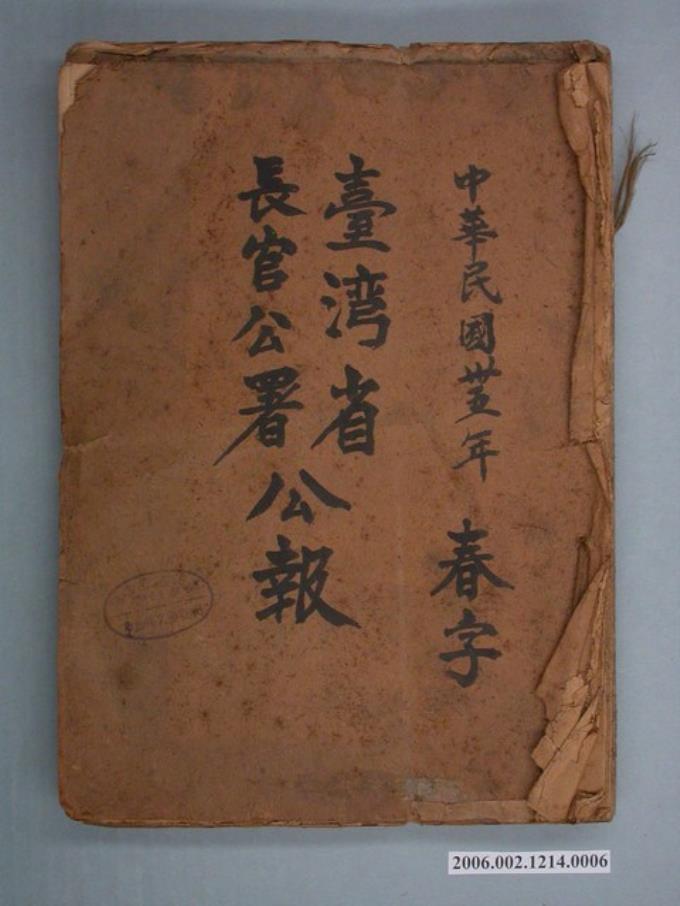 中華民國卅五年 春字
臺灣省
長官公署公報
2006.002.1214.0006